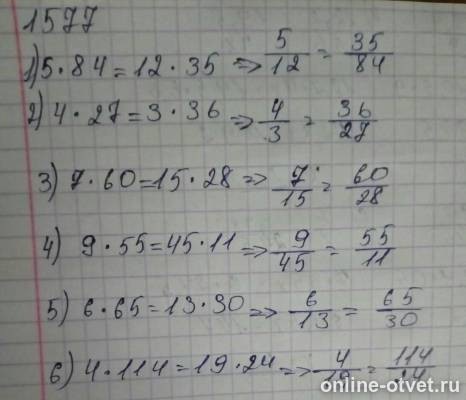 1577
1) 5·84=12·35 => 5/12 = 35/84
2) 4·27=3·36 => 4/3 = 36/27
3) 7·60=15·28 => 7/15 = 60/28
4) 9·55=45·11 => 9/45 = 55/11
5) 6·65=13·30 => 6/13 = 65/30
6) 4·114=19·24 => 4/19 = 114
online-otvet.ru